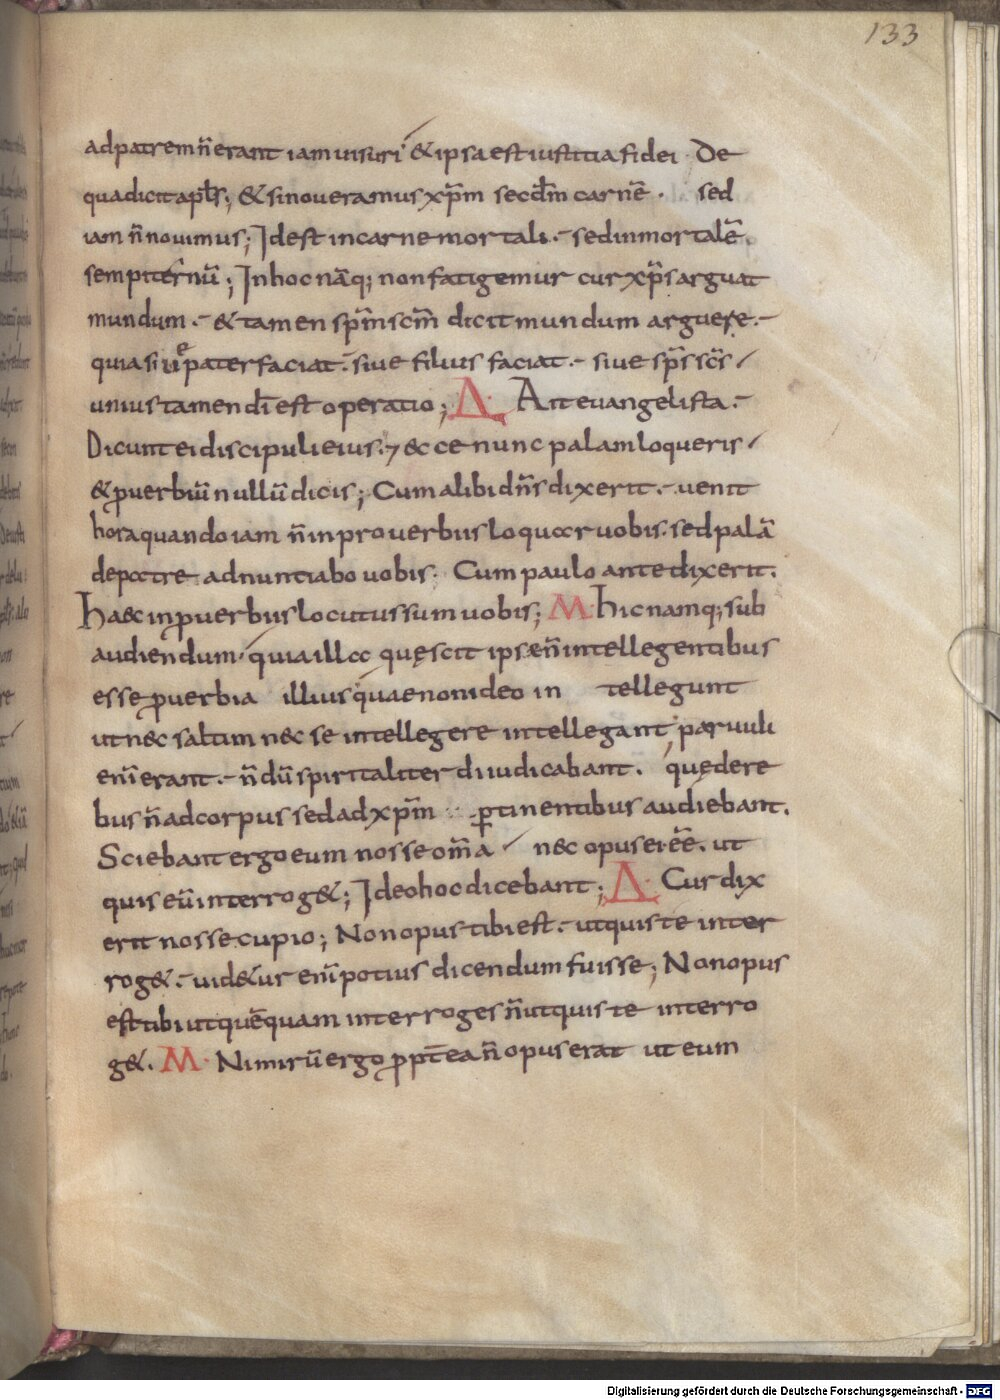 133
adpatrem n̄ erant iam uisuri & ipsa est iustitia fidei De
qua dicit apłs; & si noueramus xp̄m secd̄m carnē. sed
iam n̄ nouimus; Idest in carne mortali. sed inmortalē
sempiternū; In hoc nāq; non fatigemur cur xp̄s arguat
mundum. & tamen sp̄m sc̄m dicit mundum arguere.
quia siue pater faciat. siue filius faciat. siue sp̄s sc̄s
unius tamen dī est operatio; Δ. Ait euangelista.
Dicunt ei discipuli eius. ecce nunc palam loqueris
& ꝓuerbiū nullū dicis; Cum alibi dn̄s dixerit. uenit
hora quando iam n̄ in prouerbiis loquor uobis. sed palā
de patre adnuntiabo uobis. Cum paulo ante dixerit.
Haec in ꝓuerbiis locutus sum uobis; M. hic namq; sub
audiendum. quia illa quę scit ipse n̄ intellegentibus
esse ꝓuerbia illi usquae non ideo in tellegunt
ut nec saltim nec se intellegere intellegant paruuli
enī erant. n̄dū spiritaliter diiudicabant. quę de re
bus n̄ ad corpus sed ad xp̄m ꝑtinentibus audiebant.
Sciebant ergo eum nosse om̄a nec opus ei eē̄. ut
quis eū interrog&; Ideo hoc dicebant; Δ. Cur dix
erit nosse cupio; Non opus tibi est. ut quis te inter
rog&. uid&ur enī potius dicendum fuisse; Non opus
est tibi ut quēquam interroges n̄ ut quis te interro
g&. M. Nimirū ergo ꝓpt̄ea n̄ opus erat ut eum
Digitalisierung gefördert durch die Deutsche Forschungsgemeinschaft - DFG